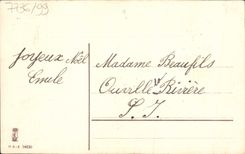 7736/99
Joyeux Noël
Emile
Madame Beaufils
Ouville Rivière
S. I.